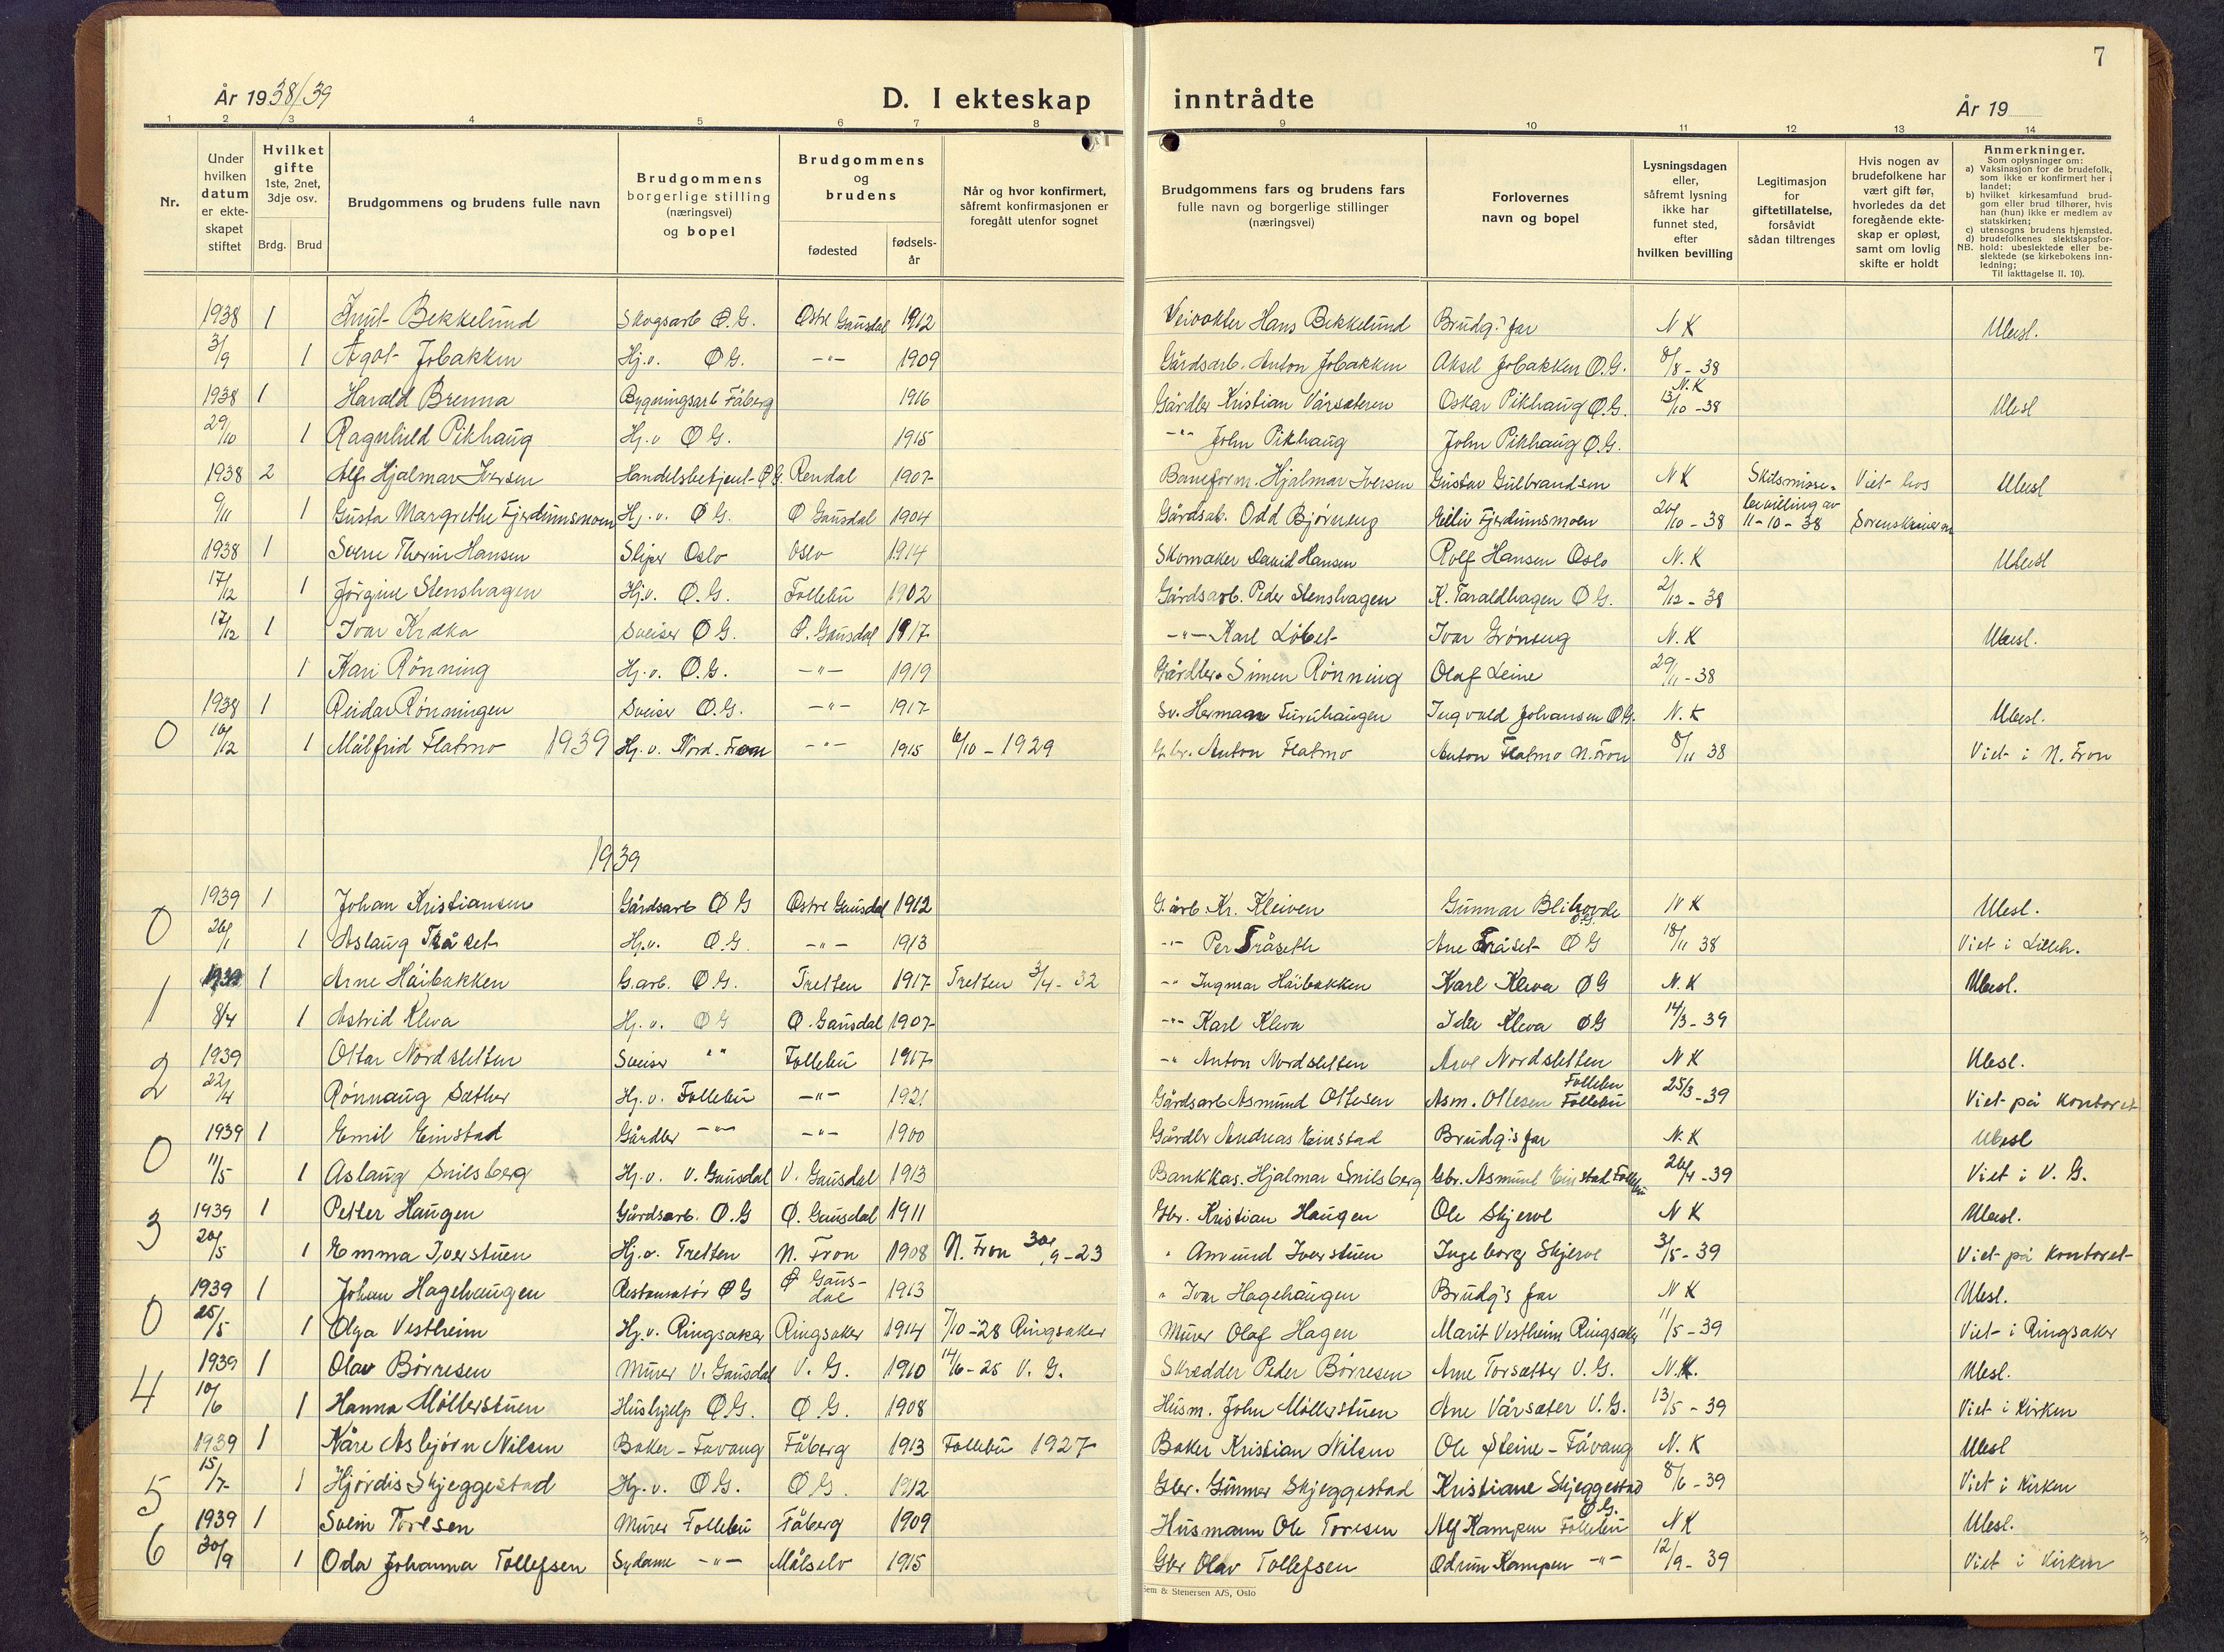 7
År 1938/39
D. I ekteskap inntrådte
År 19
1 2 3 4 5 6 7 8 9 10 11 12 13 14
Nr.
Under hvilken datum er ekte-skapet stiftet
Hvilket gifte 1ste, 2net, 3dje osv.
Brdg. Brud
Brudgommens og brudens fulle navn
Brudgommens borgerlige stilling (næringsvei) og bopel
Brudgommens og brudens
fødested
fødsels-år
Når og hvor konfirmert, såfremt konfirmasjonen er foregått utenfor sognet
Brudgommens fars og brudens fars fulle navn og borgerlige stillinger (næringsvei)
Forlovernes navn og bopel
Lysningsdagen eller, såfremt lysning ikke har funnet sted, efter hvilken bevilling
Legitimasjon for giftetillatelse, forsåvidt sådan tiltrenges
Hvis nogen av brudefolkene har vært gift før, hvorledes da det foregående ekte-skap er opløst, samt om lovlig skifte er holdt
Anmerkninger.
Som oplysninger om:
a) Vaksinasjon for de brudefolk, som ikke er konfirmert her i landet;
b) hvilket kirkesamfund brud-gom eller brud tilhører, hvis han (hun) ikke er medlem av statskirken;
c) utensogns brudens hjemsted.
d) brudefolkenes slektskapsfor-
NB. hold: ubeslektede eller be-slektede (se kirkebokens inn-ledning;
Til iakttagelse II. 10).
1938 1 Knut Bekkelund Skogsarb Ø.G. Østre Gausdal 1912 Veivokter Hans Bekkelund Brudg.s far N K Ubesl.
3/9 1 Ågot Jobakken Hj.v. Ø G. -"- 1909 Gårdsarb. Anton Jobakken Aksel Jobakken Ø.G. 8/8 - 38
1938 1 Harald Brenna Bygningsarb Fåberg 1916 Gårdbr Kristian Vårsæteren Oskar Pikhaug Ø.G. N.K 13/10 - 38 Ubesl
29/10 1 Ragnhild Pikhaug Hj.v Ø G. 1915 -"- John Pikhaug John Pikhaug Ø.G.
1938 2 Alf Hjalmar Iversen Handelsbetjent Ø G. Rendal 1907 Baneform. Hjalmar Iversen Gustav Gulbrandsen N K Skilsmisse- Viet hos Ubesl
9/11 1 Gusta Margrethe Fjerdumsmoen Hj.v. Ø G. Ø Gausdal 1904 Gårdsab. Odd Bjørneng Eiliv Fjerdumsmoen 20/10 - 38 bevilling av 11-10-38 Sorenskriveren
1938 1 Sverre Hansen Sliper Oslo Oslo 1914 Skomaker David Hansen Rolf Hansen Oslo N.K Ubesl
17/12 1 Jørgine Stenshagen Hj.v. Ø.G. Follebu 1902 Gårdsarb. Peder Stenshagen K. Taraldhagen Ø G. 2/12 - 38
17/12 1 Ivar Sveiser Ø G. Ø. Gausdal 1917 -"- Karl Ivar Grøneng N.K Ubesl.
1 Kari Rønning Hj.v. Ø.G. -"- 1919 Gårdbr. Simen Rønning Olaf Leine 29/11 - 38
1938 1 Reidar Rønningen Sveiser Ø.G. -"- 1917 Sv. Herman Furuhaugen Ingvald Johansen Ø G. N.K Ubesl.
0 10/12 1 Målfrid Flatmo 1939 Hj.v. Nord-Fron -"- 1915 6/10 - 1929 Gbr. Anton Flatmo Anton Flatmo N.Fron 8/11 38 Viet i N. Fron
1939
1939 1 Johan Kristiansen Gårdsarb Ø G Østre Gausdal 1912 G.arb. Kr. Kleiven Gunnar Ø.G. N K Ubesl.
0 26/1 1 Aslaug Tråset Hj.v. Ø.G. -"- 1913 -"- Per Tråseth Ane Tråset Ø G 18/11 38 Viet i Lilleh.
1939 1 Arne Håibakken G.arb. Ø G. Tretten 1917 Tretten 3/4 - 32 -"- Ingmar Håibakken Karl Kleva Ø G N.K Ubesl.
1 8/4 1 Astrid Kleva Hj.v. Ø G Ø. Gausdal 1907 -"- Karl Kleva Ida Kleva Ø G 14/3 - 39
1939 Ottar Nordsletten Sveiser "" Follebu 1917 -"- Anton Nordsletten Nordsletten N K Ubesl.
2 22/4 Rønnaug Sæther Hj.v. Follebu -"- 1921 Gårdsarb Asmund Ottesen Asm. Ottesen Follebu Follebu 25/3 - 39 Viet på kontoret
1939 1 Emil Einstad Gårdbr -"- -"- 1900 Gårdbr Andreas Einstad Brudg.s far N.K Ubesl
0 11/5 1 Aslaug Snilsberg Hj.v. V. Gausdal V. Gausdal 1913 Bankkas. Hjalmar Snilsberg Gbr. Asmund Einstad Follebu 26/4 - 39 Viet i V. G.
1939 1 Petter Haugen Gårdsarb. Ø.G Ø. Gausdal 1911 Gbr. Kristian Haugen Ole Skjerve N K Ubesl.
3 20/5 1 Emma Iverstuen Hj.v. Tretten N. Fron 1908 N. Fron 30/9 - 23 " Amund Iverstuen Ingeborg Skjerve 3/5 - 39 Viet på kontoret
1939 1 Johan Hagehaugen Restauratør Ø G Ø Gaus-dal 1913 " Ivar Hagehaugen Brudg's far N K Ubesl.
0 25/5 1 Olga Vestheim Hj.v. Ringsaker Ringsaker 1914 7/10 - 28 Ringsaker Murer Olaf Hagen Marit Vestheim Ringsaker 11/5 - 39 Viet i Ringsaker
1939 1 Olav Børresen Murer V. Gausdal V. G. 1910 14/6 - 25 V. G. Skredder Peder Børresen Arne Torsætter V. G. N.K. Ubesl.
4 10/6 1 Hanna Møllerstuen Hushjelp Ø.G. Ø G. 1908 Husm. John Møllerstuen Ane Vårsæter V.G. 13/5 - 39 Viet i Kirken
1939 1 Kåre Asbjørn Nilsen Baker - Favang Fåberg 1913 Follebu 1927 Baker Kristian Nilsen Ole Steine - Fåvang N.K Ubesl
5 15/7 1 Hjørdis Skjeggestad Hj.v. Ø G. Ø G. 1912 Gbr. Gunnar Skjeggestad Kristiane Skjeggestad Ø G. 8/6 - 39 Viet i Kirken
1939 1 Svein Toresen Murer Follebu Fåberg 1909 Husmann Ole Toresen Alf Kampen Follebu N K Ubesl.
6 30/9 1 Oda Johanna Tollefsen Sydame -"- Målselv 1915 Gbr Olav Tollefsen Kampen -"- 12/9 - 39 Viet i Kirken
Sem & Stenersen A/S, Oslo